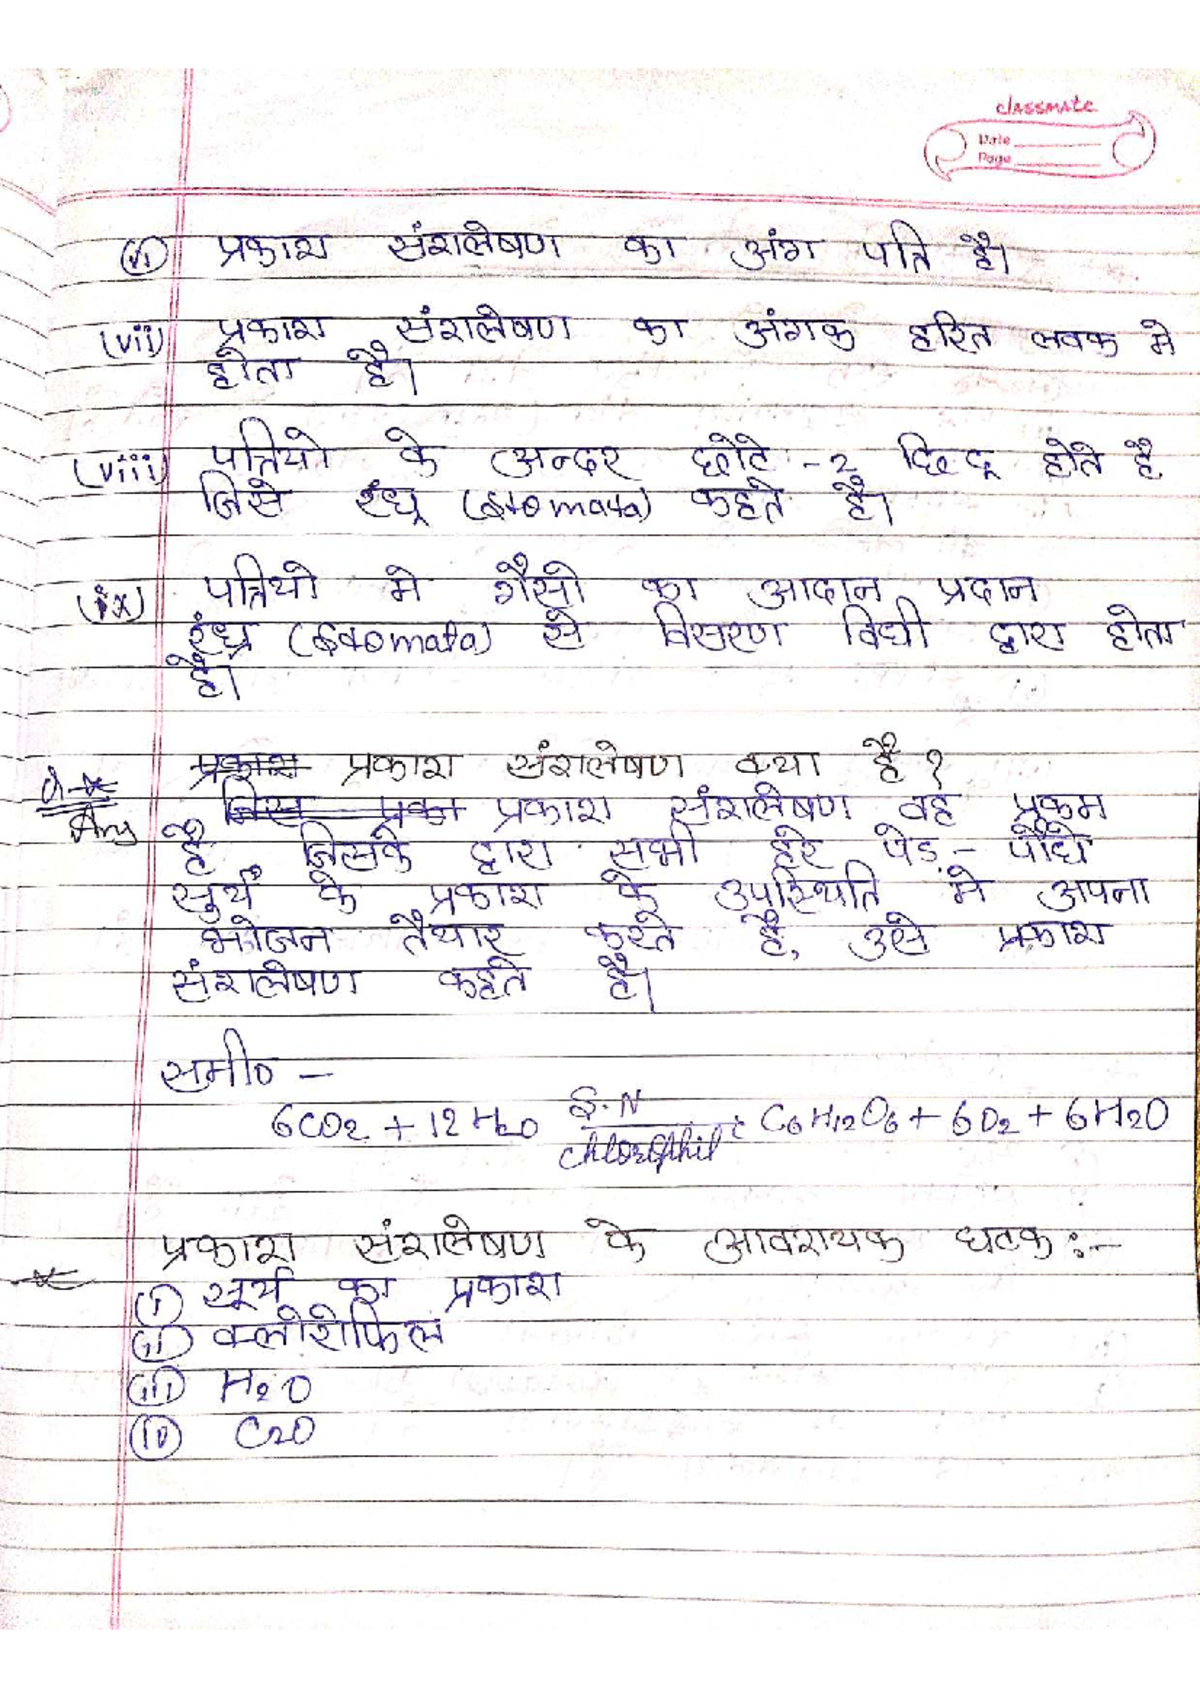 classmate
Date
Page
(vi) प्रकाश संशलेषण का अंग पति है।
(vii) प्रकाश संशलेषण का अंगक हरित लवक मे
होता है।
(viii) पत्तियो के अन्दर छोटे -2 छिद्र होते है.
जिसे रंध्र (stomata) कहते है।
(ix) पत्तियो मे गैसो का आदान प्रदान
रंध्र (stomata) से विसरण विधी द्वारा होता
है।
प्रकाश प्रकाश संशलेषण क्या है ?
Ans प्रकाश संशलेषण वह प्रक्रम
है जिसके द्वारा सभी हरे पेड़ - पौधे
सुर्य के प्रकाश के उपस्थिति मे अपना
भोजन तैयार करते है, उसे प्रकाश
संशलेषण कहते है।
समी० -
6CO2 + 12H2O S.N / chlorophil → C6H12O6 + 6O2 + 6H2O
प्रकाश संशलेषण के आवशयक घटक :-
(i) सूर्य का प्रकाश
(ii) क्लोरोफिल
(iii) H2O
(iv) C2O